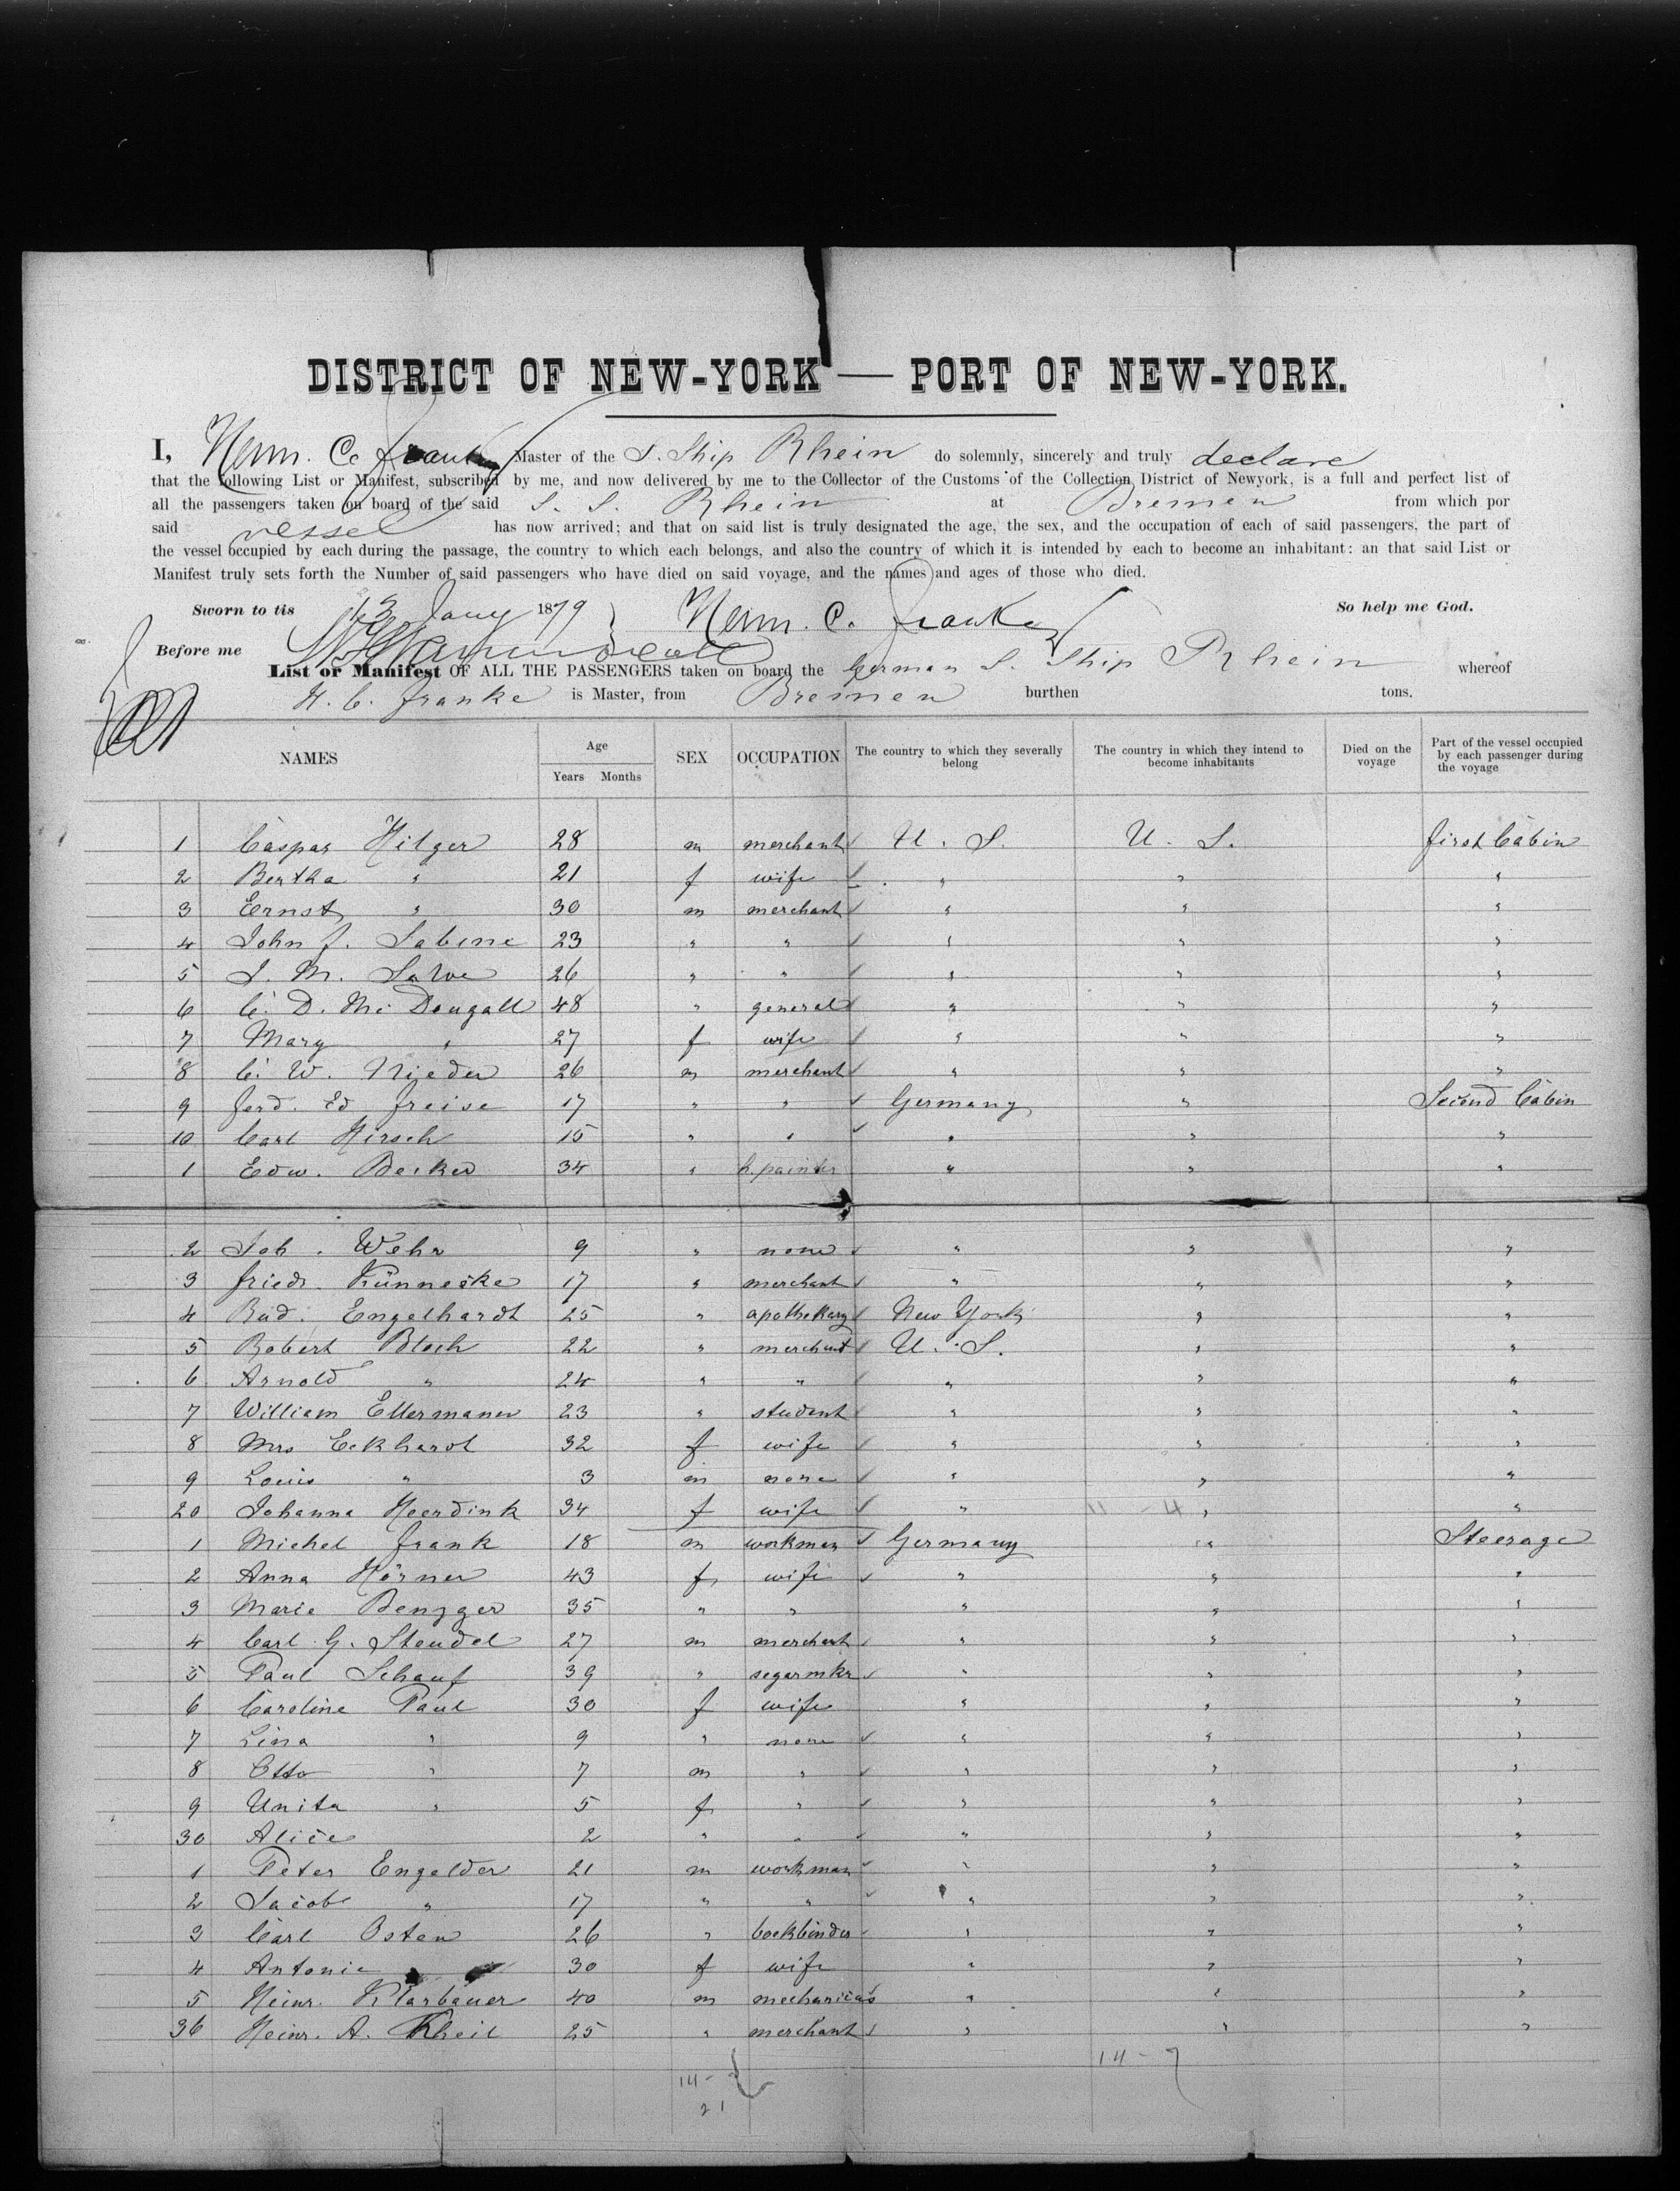 DISTRICT OF NEW-YORK — PORT OF NEW-YORK.
I, Herm. C. Franke, Master of the S. Ship Rhein do solemnly, sincerely and truly declare
that the following List or Manifest, subscribed by me, and now delivered by me to the Collector of the Customs of the Collection District of Newyork, is a full and perfect list of
all the passengers taken on board of the said S. S. Rhein at Bremen from which por
said vessel has now arrived; and that on said list is truly designated the age, the sex, and the occupation of each of said passengers, the part of
the vessel occupied by each during the passage, the country to which each belongs, and also the country of which it is intended by each to become an inhabitant: an that said List or
Manifest truly sets forth the Number of said passengers who have died on said voyage, and the names and ages of those who died.
Sworn to tis 13 Jany 1879 Herm. C. Franke So help me God.
Before me
List or Manifest OF ALL THE PASSENGERS taken on board the German S. Ship Rhein whereof
H. C. Franke is Master, from Bremen burthen tons.
NAMES Age Years Months SEX OCCUPATION The country to which they severally belong The country in which they intend to become inhabitants Died on the voyage Part of the vessel occupied by each passenger during the voyage
1 Caspar Hilger 28 m merchant U. S. U. S. first Cabin
2 Bertha " 21 f wife " " "
3 Ernst " 30 m merchant " " "
4 John F. Sabine 23 " " " " "
5 S. M. 26 " " " " "
6 C. D. Mc Dougall 48 " general " " "
7 Mary " 27 f wife " " "
8 C. W. 26 m merchant " " "
9 Ferd. Ed Freise 17 " " Germany " Second Cabin
10 Carl Hirsch 15 " " " " "
1 Edw. Becker 34 " h. painter " " "
2 Joh. Wehr 9 " none " " "
3 Friedr. Künneske 17 " merchant " " "
4 Rud. Engelhardt 25 " apothekary New York " "
5 Robert Bloch 22 " merchant U. S. " "
6 Arnold " 24 " " " " "
7 William Ellermann 23 " student " " "
8 Mrs Eckhardt 32 f wife " " "
9 Louis " 3 m none " " "
20 Johanna Heerdink 34 f wife " 11 - 4 " "
1 Michel Frank 18 m workman Germany " Steerage
2 Anna Hörner 43 f wife " " "
3 Marie Bengger 35 " " " " "
4 Carl G. Steudel 27 m merchant " " "
5 Paul Schauf 39 " segarmkr " " "
6 Caroline Paul 30 f wife " " "
7 Lina " 9 " none " " "
8 Otto " 7 m " " " "
9 Unita " 5 f " " " "
30 Alice 2 " " " " "
1 Peter Engelder 21 m workman " " "
2 Jacob " 17 " " " " "
3 Carl Osten 26 " bookbinder " " "
4 Antonie 30 f wife " " "
5 Heinr. Klarbauer 40 m mechanicus " " "
36 Heinr. A. Kheil 25 " merchant " " "
14 - 7
14 -
21